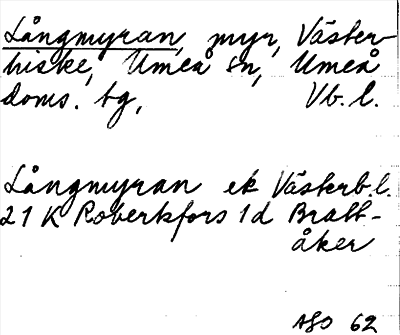 Långmyran, myr, Väster-
hiske, Umeå sn, Umeå
doms. tg, Vb. l.
Långmyran ek Västerb. l.
21 K Robertsfors 1 d Bratt-
åker
ASO 62